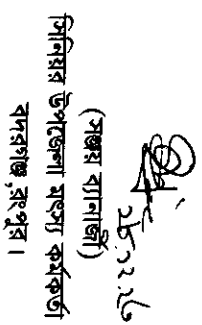 (সঞ্জয় ব্যানার্জী)
সিনিয়র উপজেলা মৎস্য কর্মকর্তা
বদরগঞ্জ, রংপুর।